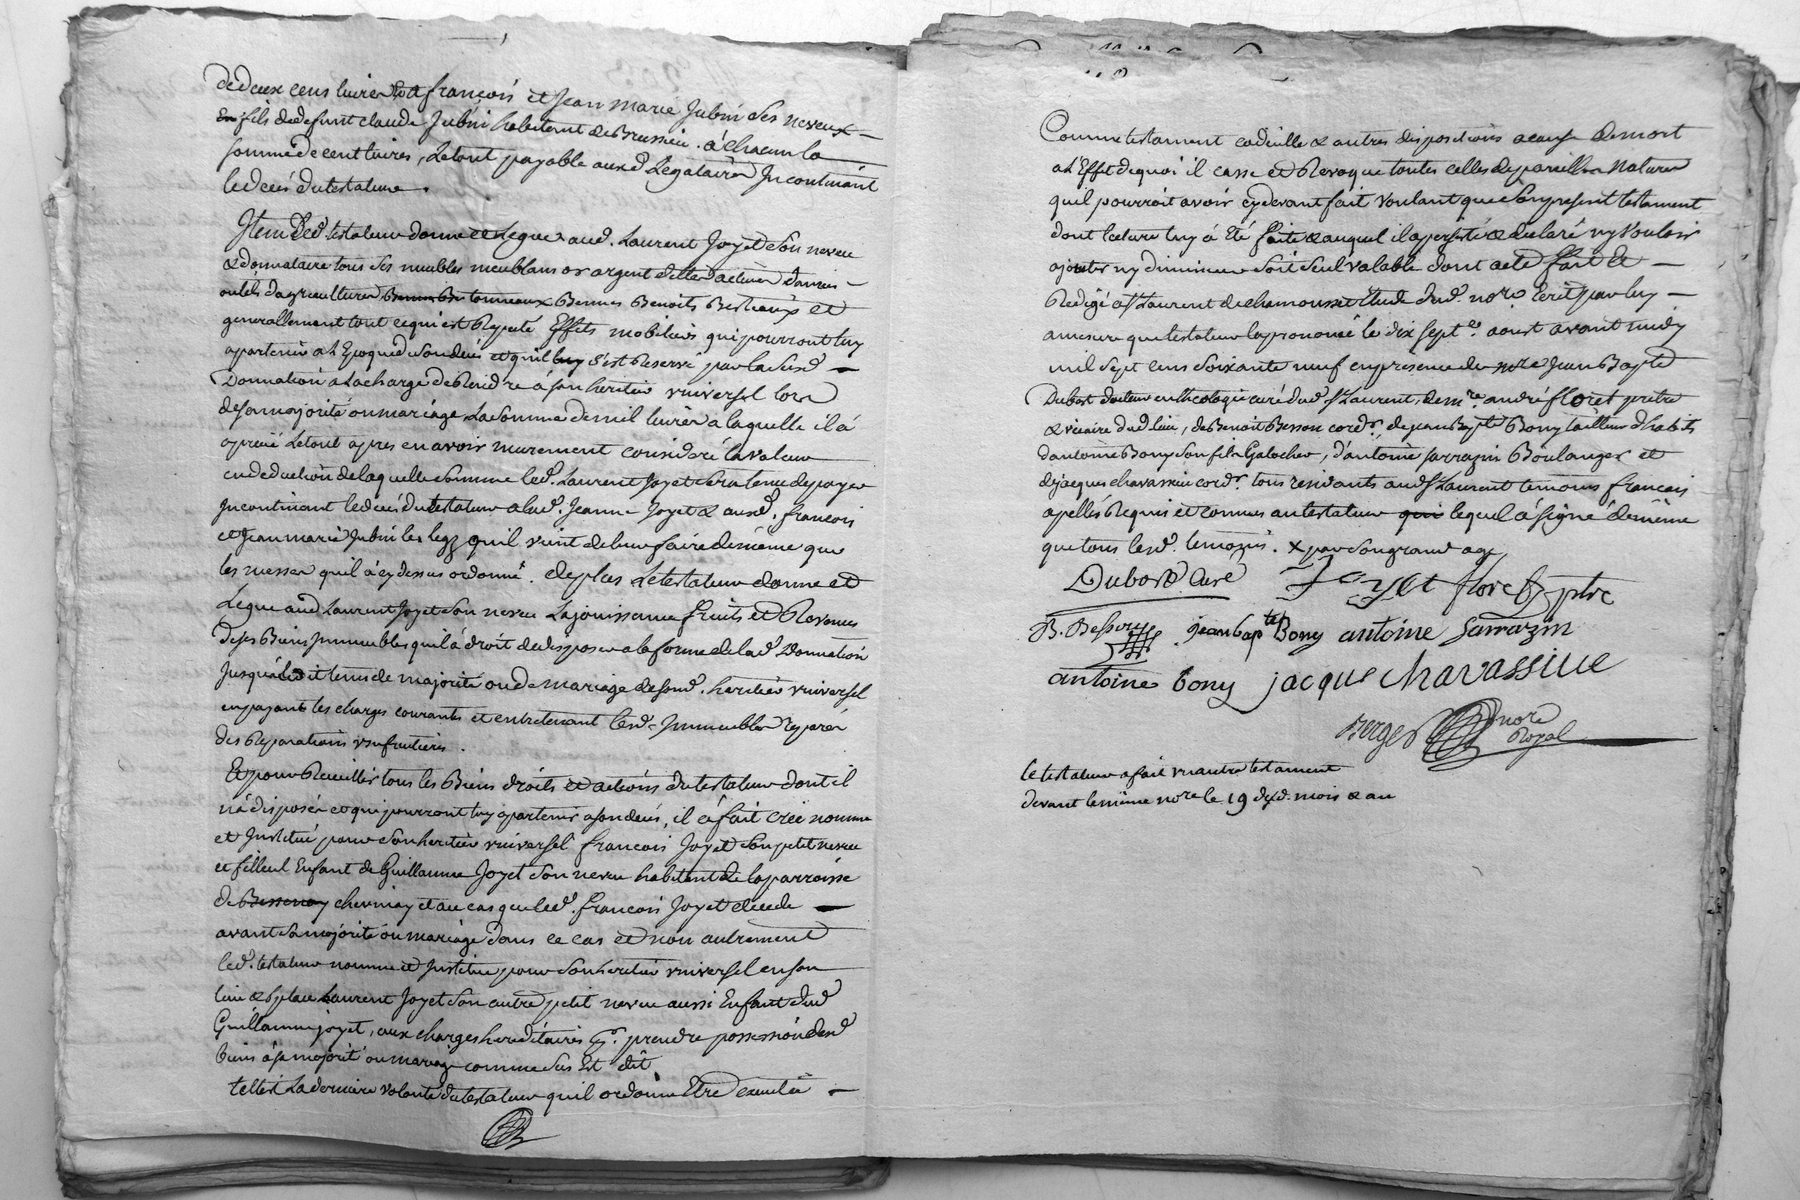 de deux cens livres et a françois et Jean marie Jubin ses neveux
fils de defunt claude Jubin habitant de Brussieu a chacun la
somme de cent livres, le tout payable auxd. Legataires Incontinant
le decés du testateur.
Item led. testateur donne et Legue aud. Laurent Joyet son neveu
& donnataire tous ses meubles meublans or argent dettes actives danrées
outils dagriculture tonneaux Bennes Benots Bestiaux et
generallement tout ce qui est Reputé Effets mobiliers qui pourront luy
apartenir a l'Epoque de son decés et qu'il s'est Reservé par la susd.
Donnation a la charge de Rendre à son heritier universel lors
de sa majorité ou mariage la somme de mil livres a laquelle il a
aprecié le tout apres en avoir murement consideré la valeur
en deduction de laquelle somme led. Laurent Joyet sera tenu de payer
Incontinant le decés du testateur a lad. Jeanne Joyet & auxd. francois
et Jean marie Jubin les legz qu'il vient de leur faire de même que
les messes qu'il a cy dessus ordonné. de plus Le testateur donne et
Legue aud. Laurent Joyet son neveu La jouissance fruits et Revenus
de ses Biens Immeubles qu'il a droit de disposer a la forme de lad. Donnation
Jusqu'à led. tems de majorité ou de mariage de sond. heritier universel
en payant les charges courantes et entretenant lesd. Immeubles
des Reparations usufruitieres.
Et pour Recueillir tous les Biens droits et actions du testateur dont il
n'a disposé et qui pourront luy apartenir a son decés, il a fait créé nommé
et Institué pour son heritier universel françois Joyet son petit neveu
et filleul Enfant de Guillaume Joyet son neveu habitant de la parroisse
de Bessenay chevinay et au cas que led. francois Joyet decede
avant sa majorité ou mariage dans ce cas et non autrement
led. testateur nomme et Institue pour son heritier universel en son
lieu & place Laurent Joyet son autre petit neveu aussi Enfant dud.
Guillaume joyet, aux charges hereditaires & pr. prendre possession desd.
biens a sa majorité ou mariage comme sus Est dit
telle est La derniere volonté du testateur qu'il ordonne Etre executée
Comme testament codicille & autres dispositions a cause de mort
a l'Effet de quoi il casse et Revoque toutes celles de pareille Nature
qu'il pourroit avoir cy devant fait voulant que son present testament
dont lecture luy a été faite & auquel il a persisté & declaré n'y vouloir
ajouter ny diminuer soit seul valable dont acte fait et
Redigé a St Laurent de chamousset Etude dud. nore. Ecrit par luy
a mesure que testateur l'a prononcé le dix sept e. aoust avant midy
mil sept cens soixante neuf en presence de mre Jean Bapte
Dubost docteur en theologie curé dud. St Laurent, de mre. andré floret prêtre
& vicaire dud. lieu, de Benoit Besson cordr. de jean Bapte Bony tailleur d'habits
d'antoine Bony son fils Galocher, d'antoine sarrazin Boulanger et
de jacques chavassieu cordr. tous residants aud. St Laurent temoins francois
apellés Requis et connus au testateur qui lequel a signé de même
que tous lesd. temoins. x par son grand age,
Dubost. Curé Joyet floret ptre
B. Besson jean bapte Bony antoine Sarrazin
antoine bony jacque chavassiue
Berger nore Royal
le testateur a fait un autre testament
devant le même nore le 19 desd. mois & an